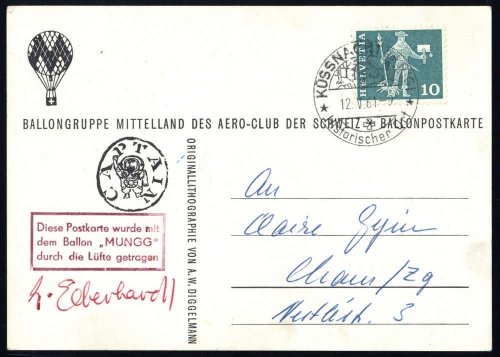 HELVETIA
10
KÜSSNACHT
12.V.61-9
Historischer Ort
BALLONGRUPPE MITTELLAND DES AERO-CLUB DER SCHWEIZ BALLONPOSTKARTE
CAPTAIN
Diese Postkarte wurde mit
dem Ballon „MUNGG"
durch die Lüfte getragen
Eberhardt
ORIGINALLITHOGRAPHIE VON A. W. DIGGELMANN
An
Claire Gysin
Cham/Zg
3